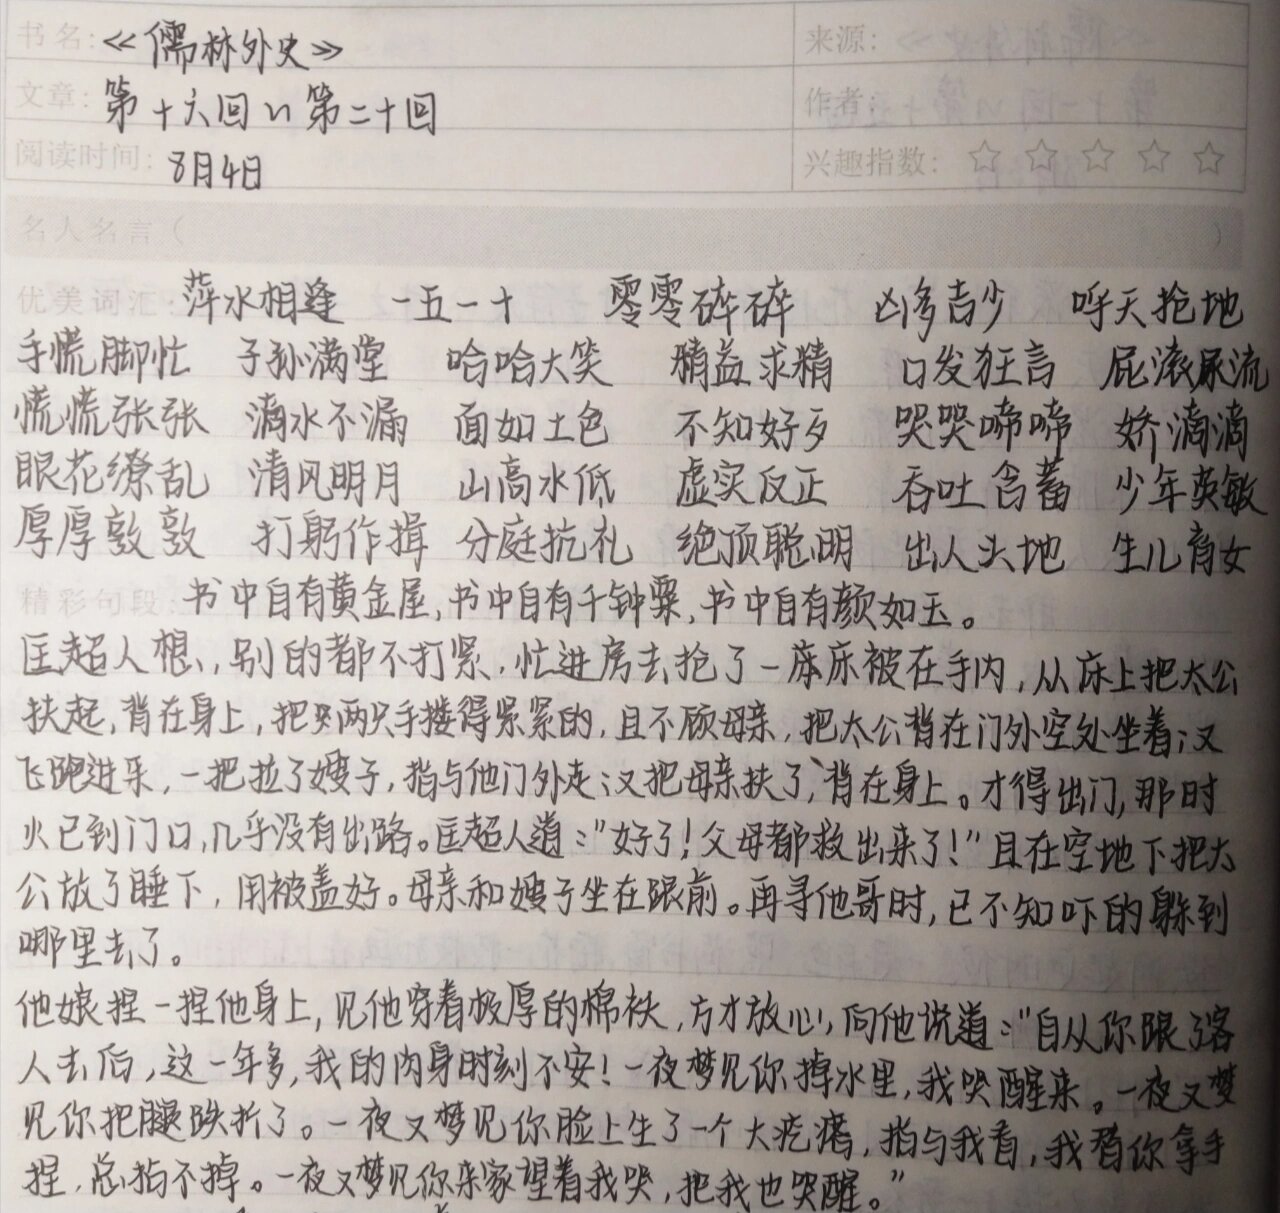 书名：《儒林外史》 来源：
文章：第十六回～第二十回 作者：
阅读时间：8月4日 兴趣指数：☆☆☆☆☆
名人名言（ ）
优美词汇：萍水相逢 一五一十 零零碎碎 凶多吉少 呼天抢地
手慌脚忙 子孙满堂 哈哈大笑 精益求精 口发狂言 屁滚尿流
慌慌张张 滴水不漏 面如土色 不知好歹 哭哭啼啼 娇滴滴
眼花缭乱 清风明月 山高水低 虚实反正 吞吐含蓄 少年英敏
厚厚敦敦 打躬作揖 分庭抗礼 绝顶聪明 出人头地 生儿育女
精彩句段：书中自有黄金屋，书中自有千钟粟，书中自有颜如玉。
匡超人想，别的都不打紧，忙进房去抢了一床被在手内，从床上把太公
扶起，背在身上，把两只手搂得紧紧的，且不顾母亲，把太公背在门外空处坐着；又
飞跑进来，一把拉了嫂子，指与他门外走；又把母亲扶了，背在身上。才得出门，那时
火已到门口，几乎没有出路。匡超人道：“好了！父母都救出来了！”且在空地下把太
公放了睡下，用被盖好。母亲和嫂子坐在跟前。再寻他哥时，已不知吓的躲到
哪里去了。
他娘捏一捏他身上，见他穿着极厚的棉袄，方才放心，向他说道：“自从你跟了客
人去后，这一年多，我的肉身时刻不安！一夜梦见你掉水里，我哭醒来。一夜又梦
见你把腿跌折了。一夜又梦见你脸上生了一个大疙瘩，指与我看，我替你拿手
捏，总捏不掉。一夜又梦见你来家望着我哭，把我也哭醒。”